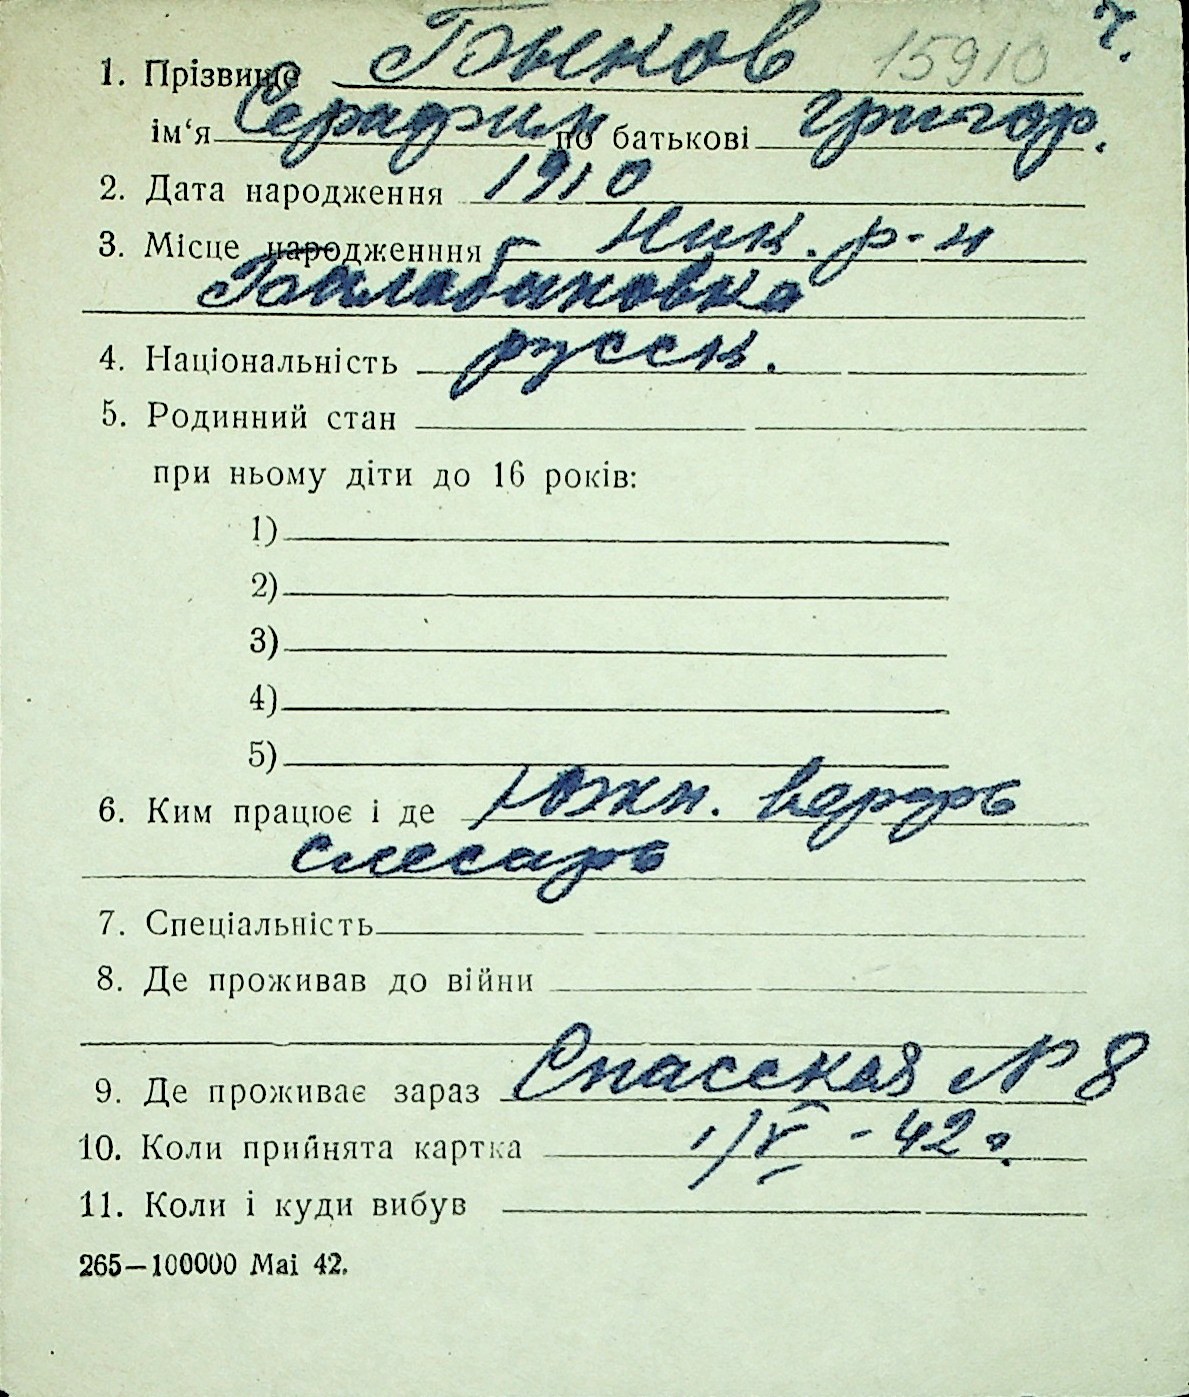 ч.
1. Прізвище Быков 15910
ім‘я Серафим по батькові Григор.
2. Дата народження 1910
3. Місце народженння Ник. р-н
Балабановка
4. Національність русск.
5. Родинний стан
при ньому діти до 16 років:
1)
2)
3)
4)
5)
6. Ким працює і де Южн. верфь
слесарь
7. Спеціальність
8. Де проживав до війни
9. Де проживає зараз Спасская № 8
10. Коли прийнята картка 1/V - 42 г.
11. Коли і куди вибув
265—100000 Маі 42.